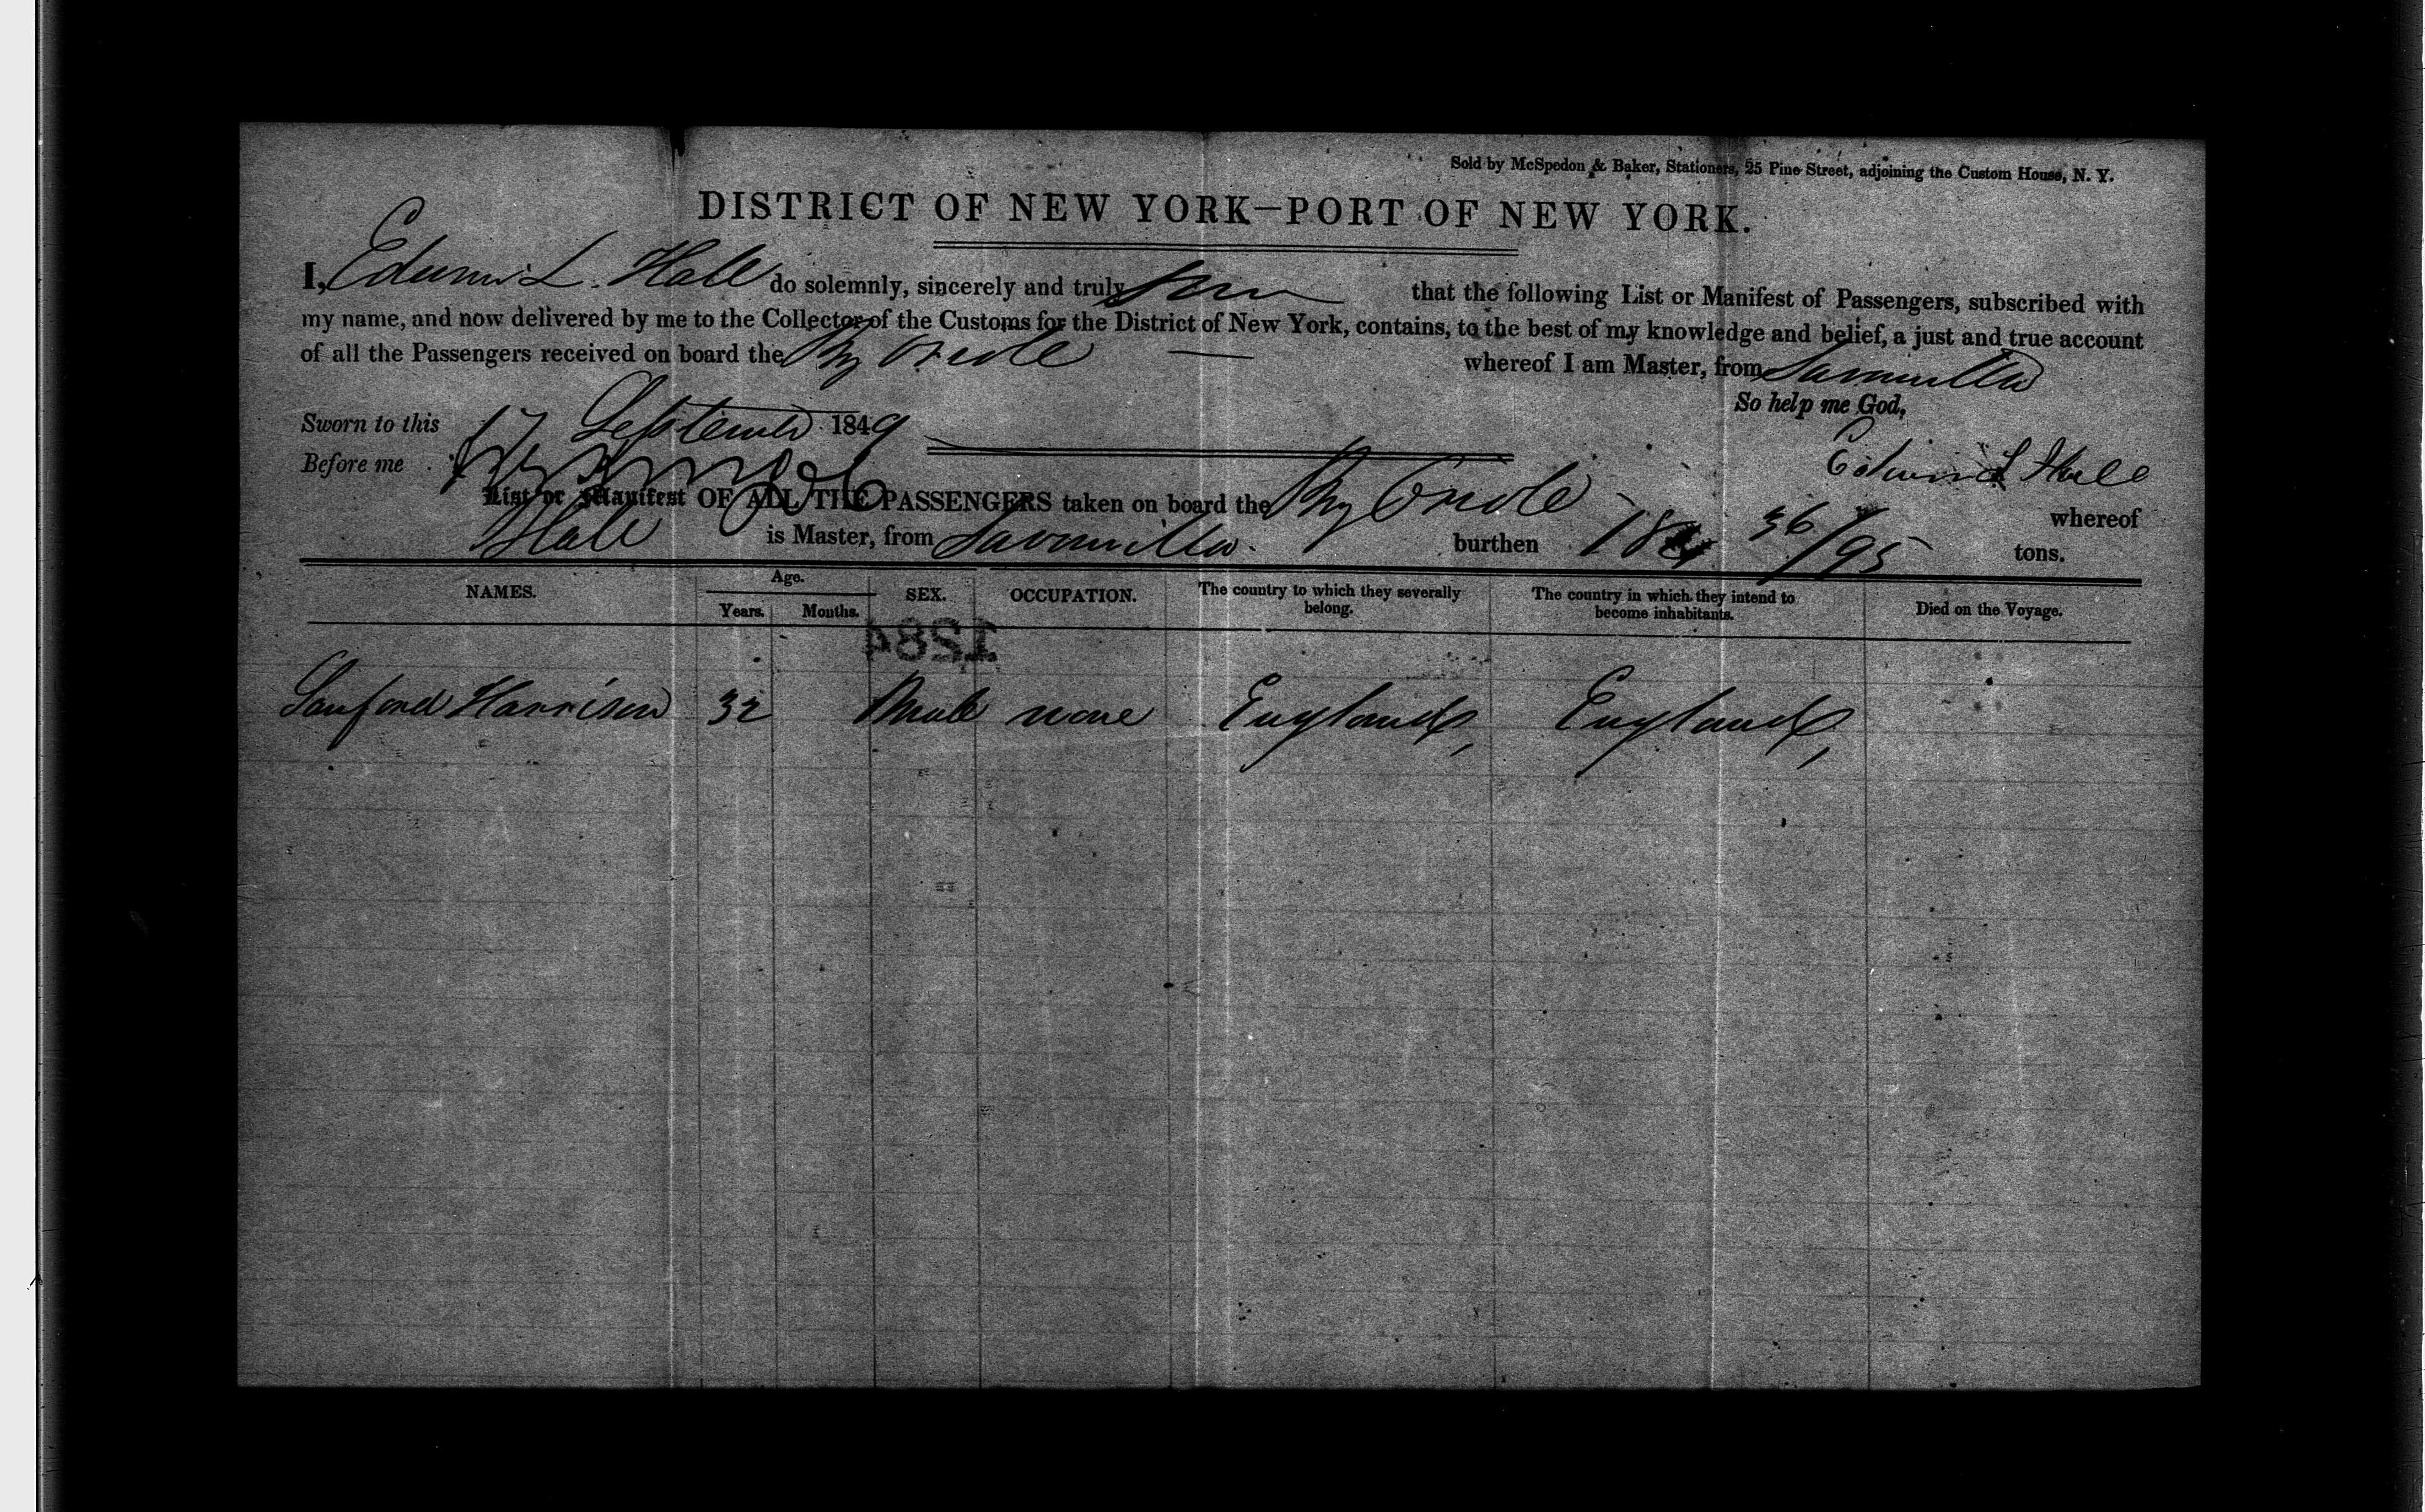 Sold by McSpedon & Baker, Stationers, 25 Pine Street, adjoining the Custom House, N. Y.
DISTRICT OF NEW YORK—PORT OF NEW YORK.
I, Edwin L. Hall do solemnly, sincerely and truly that the following List or Manifest of Passengers, subscribed with
my name, and now delivered by me to the Collector of the Customs for the District of New York, contains, to the best of my knowledge and belief, a just and true account
of all the Passengers received on board the Brig Oriole whereof I am Master, from Savanilla
So help me God,
Sworn to this 17 September 1849
Before me Edwin L Hall
List or Manifest OF ALL THE PASSENGERS taken on board the Brig Oriole whereof
Hall is Master, from Savanilla. burthen 36/95 tons.
NAMES. Age. SEX. OCCUPATION. The country to which they severally belong. The country in which they intend to become inhabitants. Died on the Voyage.
Years. Months.
1284
Sanford Harrison 32 Male none England, England,